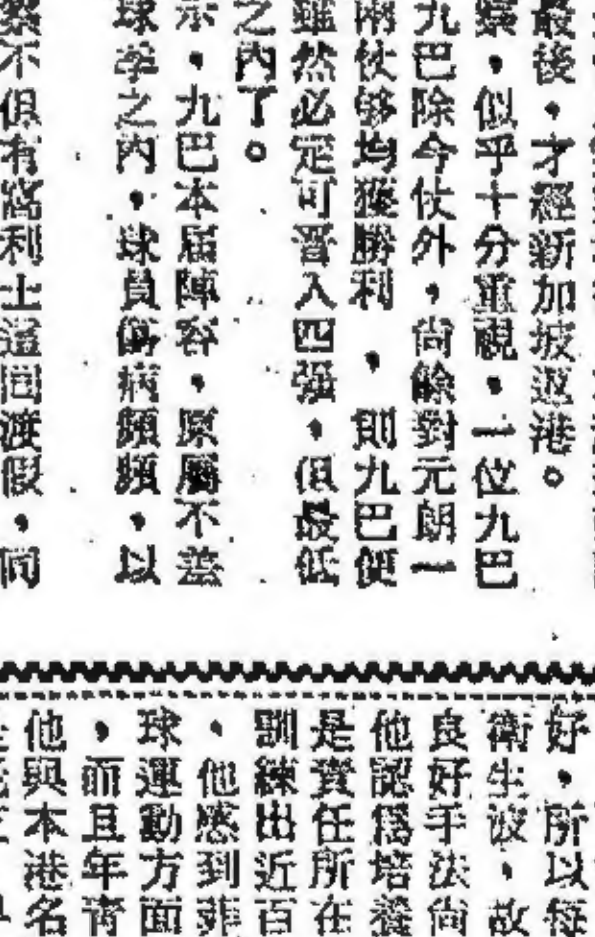 最後，才經新加坡返港。
賽，似乎十分重視，一位九巴
九巴除今仗外，尚餘對元朗一
兩仗够均獲勝利，則九巴便
雖然必定可晋入四强，但最低
之內了。
示，九巴本屆陣容，原屬不差
球季之內，球員傷病頻頻，以
不但有窩利士返回渡假，同
好，所以每
衛生波，故
良好手法尚
他認爲培養
是責任所在
訓練出近百
，他感到非
球運動方面
，而且年青
他與本港名